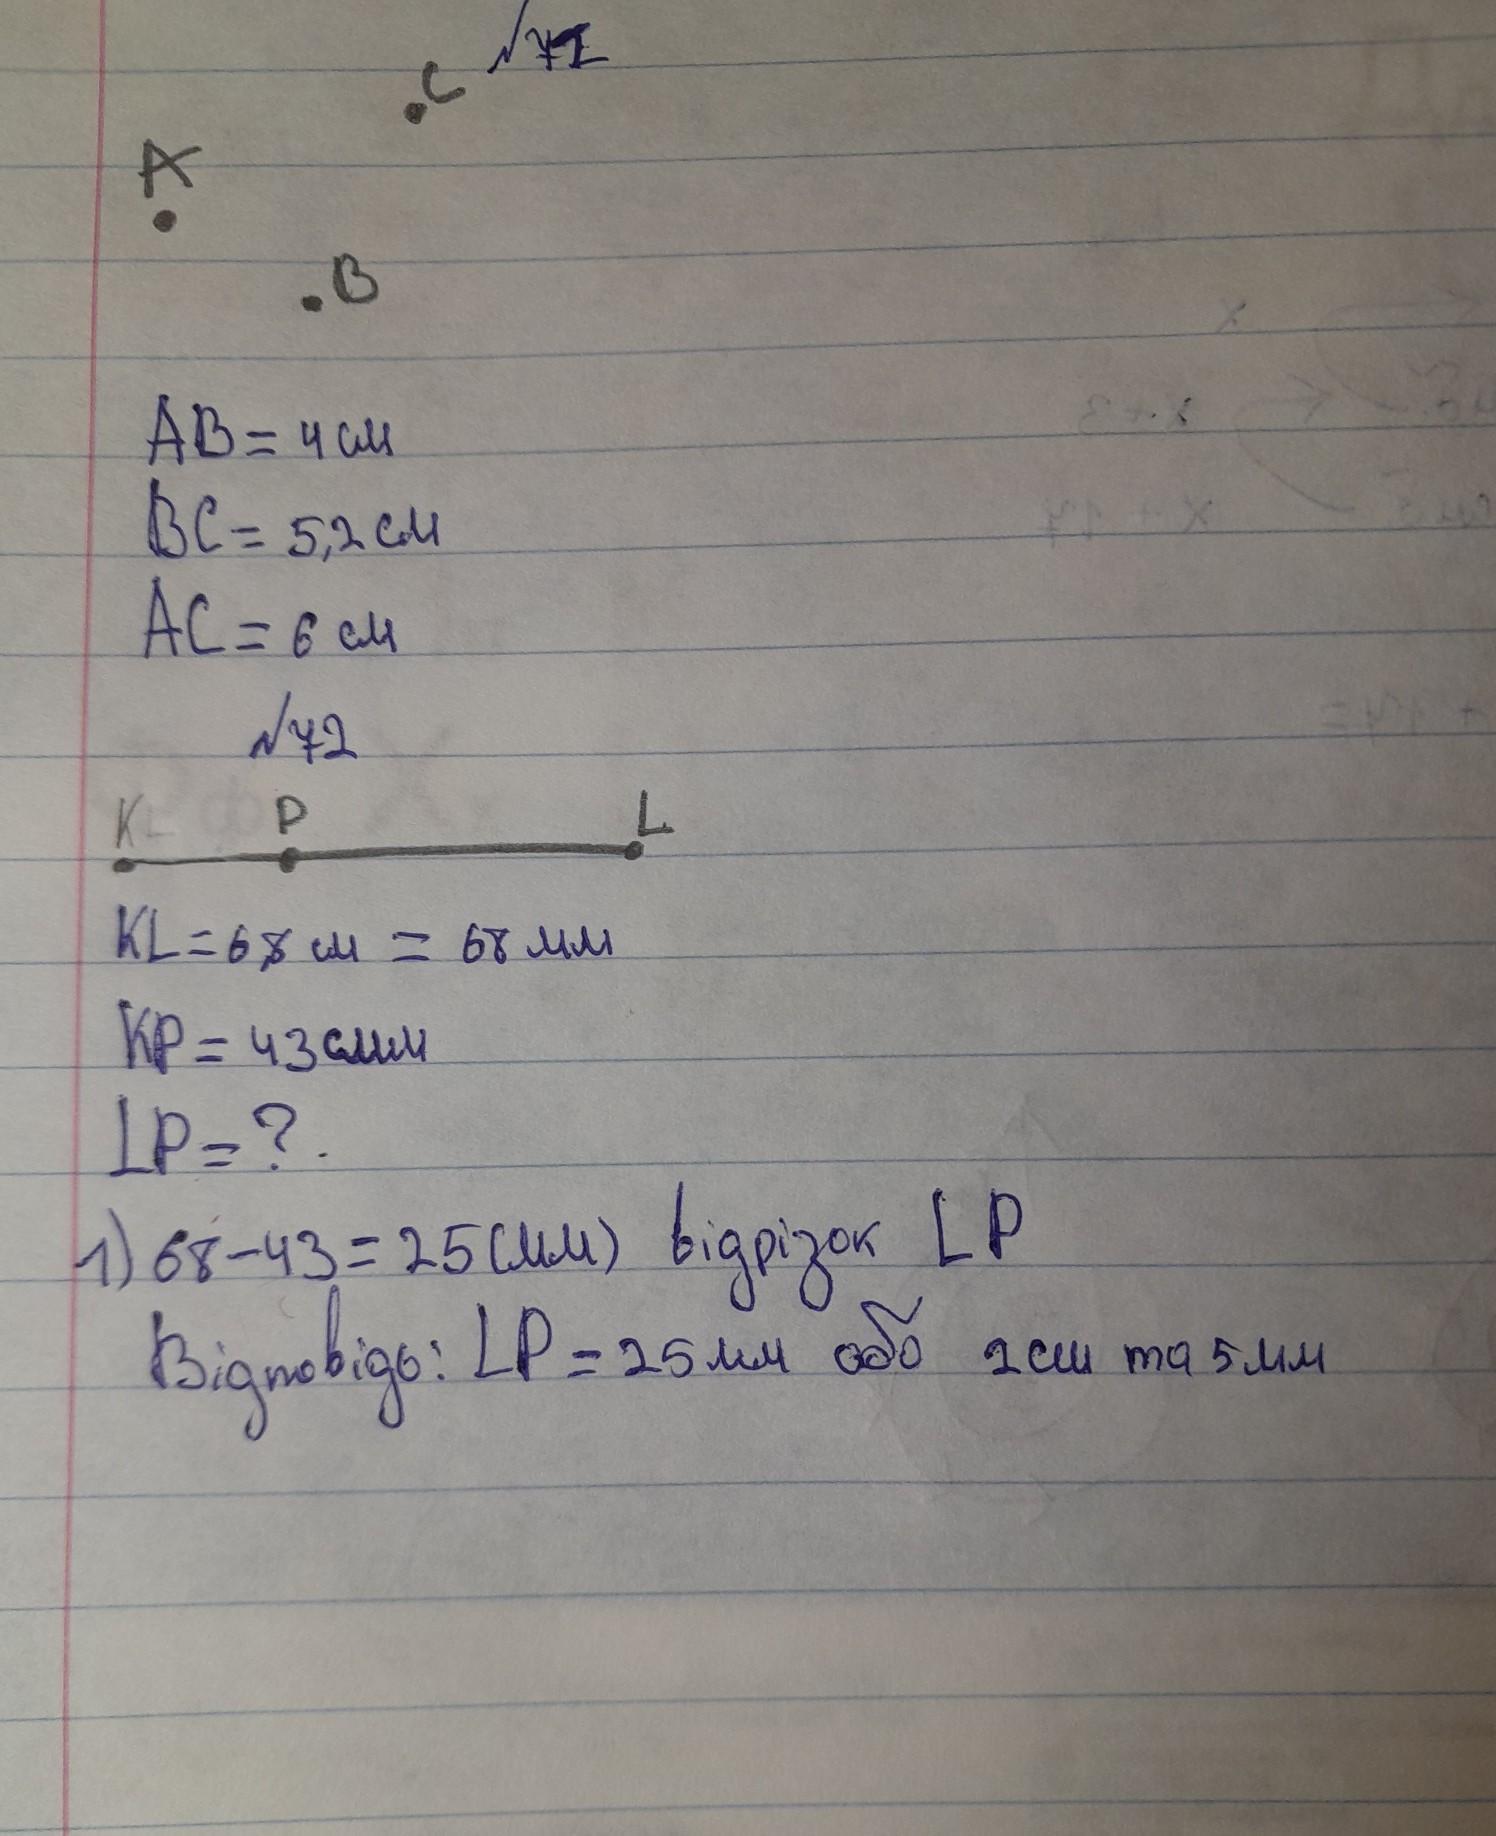 №71
C
A
B
AB = 4 см
BC = 5,2 см
AC = 6 см
№72
K P L
KL = 68 см = 68 мм
KP = 43 мм
LP = ?.
1) 68 - 43 = 25 (мм) відрізок LP
Відповідь: LP = 25 мм або 2 см та 5 мм
x
x + 3
x + 17
+ 17 =